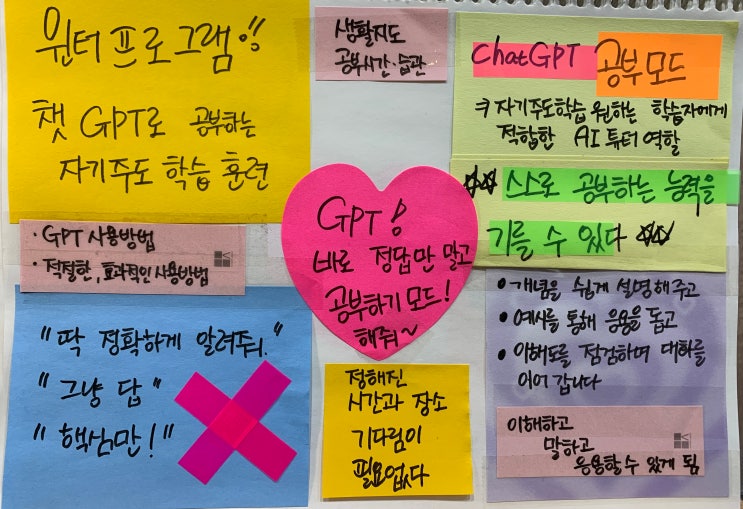 윈터프로그램!!
챗 GPT로 공부하는
자기주도 학습 훈련
· GPT 사용방법
· 적절한, 효과적인 사용방법
"딱 정확하게 알려줘."
"그냥 답"
"핵심만!"
생활지도
공부시간·습관
GPT!
바로 정답만 말고
공부하기모드!
해줘~
정해진
시간과 장소
기다림이
필요없다
ChatGPT 공부모드
자기주도학습 원하는 학습자에게
적합한 AI 튜터 역할
☆☆ 스스로 공부하는 능력을
기를 수 있다 ☆☆
• 개념을 쉽게 설명해주고
• 예시를 통해 응용을 돕고
• 이해도를 점검하며 대화를
이어 갑니다
이해하고
말하고
응용할 수 있게 됨